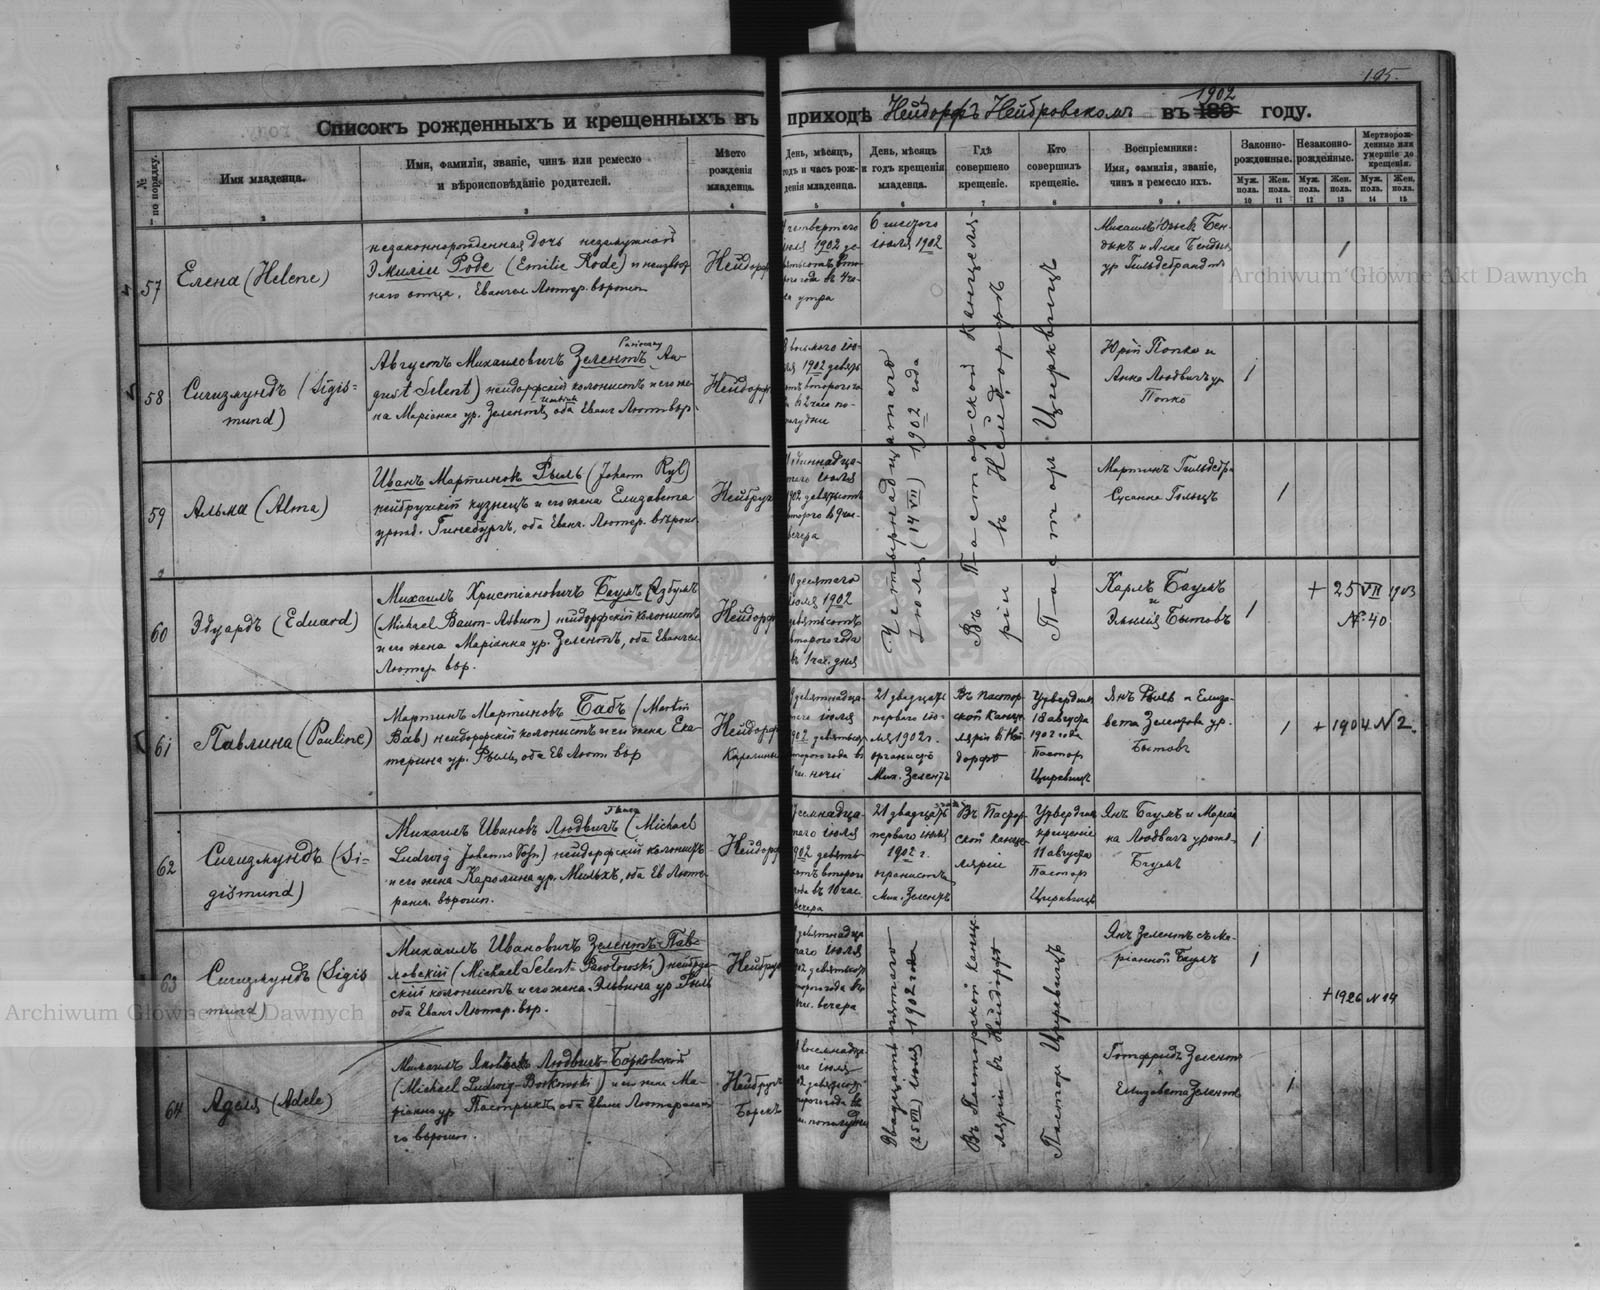 195.
Списокъ рожденныхъ и крещенныхъ въ приходѣ Нейдорфъ Нейбровскомъ въ 189 1902 году.
№ по порядку.
Имя младенца.
Имя, фамилія, званіе, чинъ или ремесло
и вѣроисповѣданіе родителей.
Мѣсто
рожденія
младенца.
День, мѣсяцъ,
годъ и часъ рож-
денія младенца.
День, мѣсяцъ
и годъ крещенія
младенца.
Гдѣ
совершено
крещеніе.
Кто
совершилъ
крещеніе.
Воспріемники:
Имя, фамилія, званіе,
чинъ и ремесло ихъ.
Законно-
рожденные.
Незаконно-
рожденные.
Мертворож-
денные или
умершіе до
крещенія.
Муж. пола.
Жен. пола.
Муж. пола.
Жен. пола.
Муж. пола.
Жен. пола.
1 2 3 4 5 6 7 8 9 10 11 12 13 14 15
57
Елена (Helene)
незаконнорожденная дочь незамужной
Эмиліи Роде (Emilie Rode) и
отца. Евангел. Лютер. вѣроисп.
Нейдорфъ
четвертого
іюля 1902
утра
6 шестого
іюля 1902
Михаилъ Бен-
дыкъ и Анна Бендыкъ
ур Гильдебрандтъ
1
58
Сигизмундъ (Sigis-
mund)
Августъ Михаиловичъ Зелентъ (Au-
gust Selent) нейдорфскій колонистъ и его же-
на Маріанна ур. Зелентъ, оба Еванг Лютвѣр.
Нейдорфъ
восьмого ію-
ля 1902 девять-
сотъ второго го-
да в 2 часа по-
полудни
Юрій Попко и
Анна Людвигъ ур
Попко
1
59
Альма (Alma)
Иванъ Мартиновъ Рыль (Johann Ryl)
нейбрускій кузнецъ и его жена Елизавета
урожд. Гинсбургъ, оба Еванг. Лютер. вѣроисп.
Нейбрувъ
одиннадца-
того іюля
1902 девятьсотъ
второго в 9 час.
вечера
Мартинъ Гильдебра
Сусанна Гольцъ
1
Четырнадцатого
іюля (14 VII) 1902 года
Въ Пасторской Канцеля
ріи въ Нейдорфѣ
Пастор Цирквицъ
60
Эдуардъ (Eduard)
Михаилъ Христіановичъ Баумъ (Азбумъ
(Michael Baum-Asbum) нейдорфскій колонистъ
и его жена Маріанна ур. Зелентъ, оба Евангел
Лютер вѣр.
Нейдорфъ
десятого
іюля 1902
девятьсотъ
второго года
въ 1 час. дня
Карлъ Баумъ
и
Эмилія Бытовъ
1
+ 25 VII 1903
№ 40
61
Павлина (Pauline)
Мартинъ Мартиновъ Бабъ (Martin
Bab) нейдорфскій колонистъ и его жена Ека-
терина ур. Рыль, оба Ев Лют вѣр
Нейдорфъ
девятнадца-
того іюля
1902 девятьсот
второго года въ
ночи
21 двадцать
перваго ію-
ля 1902 г.
органистъ
Мих. Зелентъ
Въ пастор-
ской канце-
ляріи в Ней
дорфѣ
Утвердилъ
18 августа
1902 года
Пастор
Цирквицъ
Янъ Рыль и Елиза-
вета Зелентова ур.
Бытовъ
1
+ 1904 N 2.
62
Сигизмундъ (Si-
gismund)
Михаилъ Ивановъ Людвигъ (Michael
Ludwig Johanns Sohn) нейдорфскій колонистъ
и его жена Каролина ур. Мильхъ, оба Ев Люте-
ранск. вѣроисп.
Нейдорфъ
семнадца-
того іюля
1902 девять-
сотъ второго
года въ 10 час.
вечера
21 двадцать
перваго іюля
1902 г.
органистъ
Мих. Зелентъ
Въ Пастор-
ской канце-
ляріи
Утвердилъ
крещеніе
18 августа
Пастор
Цирквицъ
Янъ Баумъ и Маріан
на Людвигъ урожд.
Баумъ
1
63
Сигизмундъ (Sigis
mund)
Михаилъ Ивановичъ Зелентъ-Пав-
ловскій (Michael Selent-Pawlowski) нейбруз-
скій колонистъ и его жена Эльвина ур Рыль
оба Еванг Лютер. вѣр.
Нейбрувъ
девятнадца
того іюля
1902 девятьсот
второго года въ
вечера
Янъ Зелентъ съ Ма-
ріанной Баумъ
1
+ 1926 N 14
64
Аделя (Adele)
Михаилъ Людвигъ-Борковскій
(Michael Ludwig-Borkowski) и его жена Ма-
ріанна ур Пастрикъ, оба Еванг Лютеранска-
го вѣроисп.
Нейбрувъ
Борекъ
восемнадца-
того іюля
1902 девятьсот
второго года въ
пополудни
Двадцать пятого
(25 VII) іюля 1902 года
Въ Пасторской Канце
ляріи въ Нейдорфѣ
Пастор Цирквицъ
Готфридъ Зелентъ
Елизавета Зелентъ
1
Archiwum Główne Akt Dawnych
Archiwum Główne Akt Dawnych